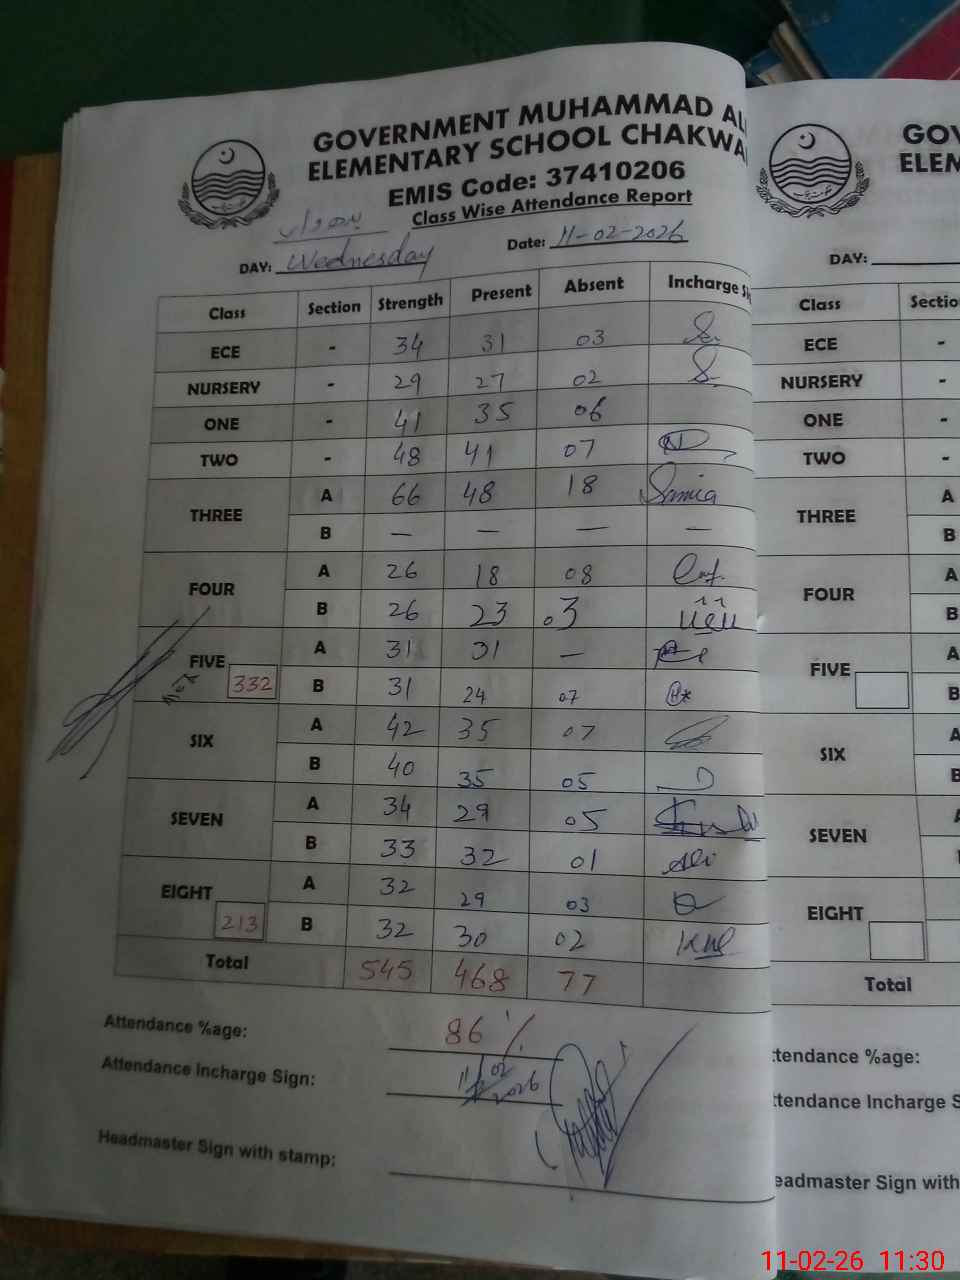 GOVERNMENT MUHAMMAD AL
ELEMENTARY SCHOOL CHAKWA
EMIS Code: 37410206
Class Wise Attendance Report
بدھوار
DAY: Wednesday Date: 11-02-2026
Class Section Strength Present Absent Incharge S
ECE - 34 31 03
NURSERY - 29 27 02
ONE - 41 35 06
TWO - 48 41 07
THREE A 66 48 18 Samia
B — — — —
FOUR A 26 18 08
B 26 23 .3
FIVE A 31 31 —
332 B 31 24 07
SIX A 42 35 07
B 40 35 05
SEVEN A 34 29 05
B 33 32 01 Ali
EIGHT A 32 29 03
213 B 32 30 02
Total 545 468 77
Attendance %age: 86 %
Attendance Incharge Sign: 11/02/2026
Headmaster Sign with stamp:
GOV
ELEM
DAY:
Class Sectio
ECE -
NURSERY -
ONE -
TWO -
THREE A
B
FOUR A
B
FIVE A
B
SIX A
B
SEVEN
EIGHT
Total
ttendance %age:
ttendance Incharge S
eadmaster Sign with
11-02-26 11:30